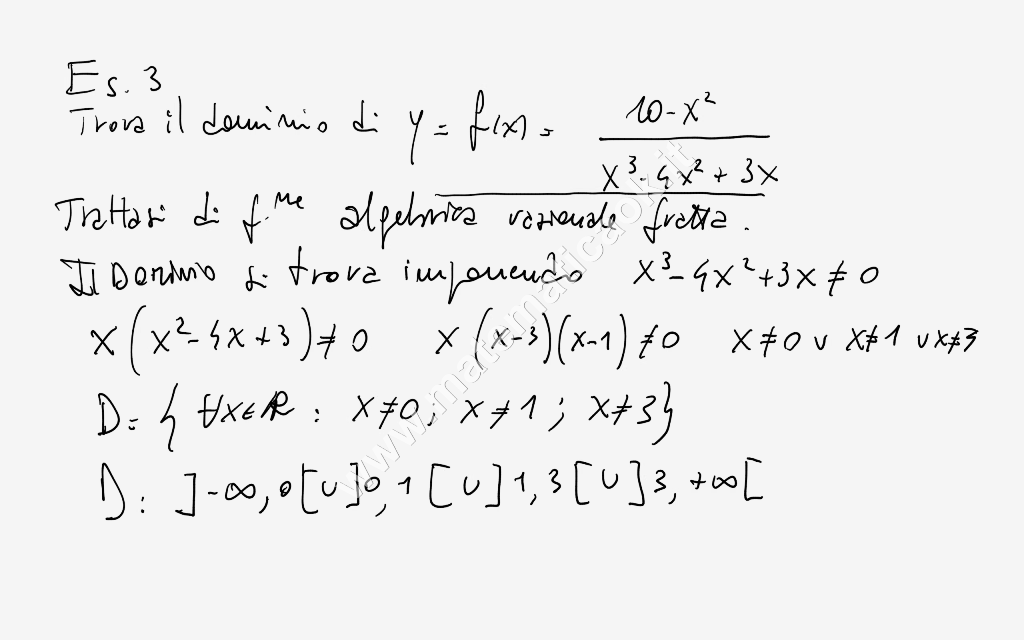 Es. 3
Trova il dominio di y = f(x) = (10-x²)/(x³-4x²+3x)
Trattasi di f.ne algebrica razionale fratta.
Il Dominio si trova imponendo x³-4x²+3x ≠ 0
x(x²-4x+3) ≠ 0 x(x-3)(x-1) ≠ 0 x≠0 ∨ x≠1 ∨ x≠3
D = { ∀x∈R : x≠0 ; x≠1 ; x≠3}
D: ]-∞, 0[ ∪ ]0, 1[ ∪ ]1, 3[ ∪ ]3, +∞[
www.matematicaok.it